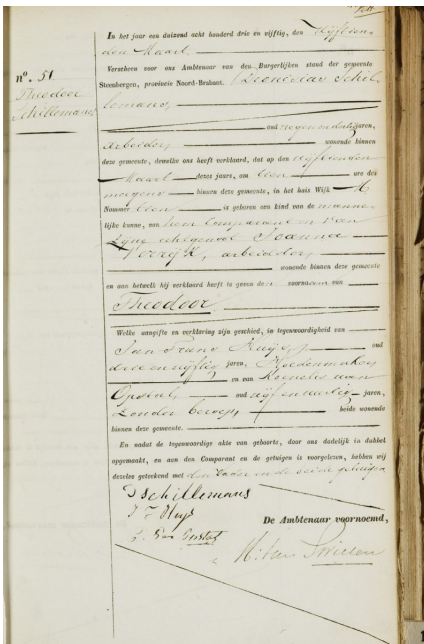 In het jaar een duizend acht honderd drie en vijftig, den vijftien-
den Maart
Verscheen voor ons Ambtenaar van den Burgerlijken stand der gemeente
nº. 51
Steenbergen, provincie Noord-Brabant. Dionisius Schil-
Theodoor
Schillemans
lemans,
oud negen en dertig jaren,
arbeider, wonende binnen
deze gemeente, dewelke ons heeft verklaard, dat op den vijftienden
Maart dezes jaars, om een ure des
morgens binnen deze gemeente, in het huis Wijk
Nommer een is geboren een kind van de manne-
lijke kunne, van hem Comparant en van
zijne echtgenoot Joanna
arbeidster,
wonende binnen deze gemeente
en aan hetwelk hij verklaard heeft te geven den voornaam van
Theodoor.
Welke aangifte en verklaring zijn geschied, in tegenwoordigheid van
Jan Frans oud
drie en vijftig jaren,
en van Kornelis van
Opstal, oud vijf en jaren,
zonder beroep, beide wonende
binnen deze gemeente.
En nadat de tegenwoordige akte van geboorte, door ons dadelijk in dubbel
opgemaakt, en aan den Comparant en de getuigen is voorgelezen, hebben wij
dezelve geteekend met den vader en de beide getuigen
D schillemans
De Ambtenaar voornoemd,